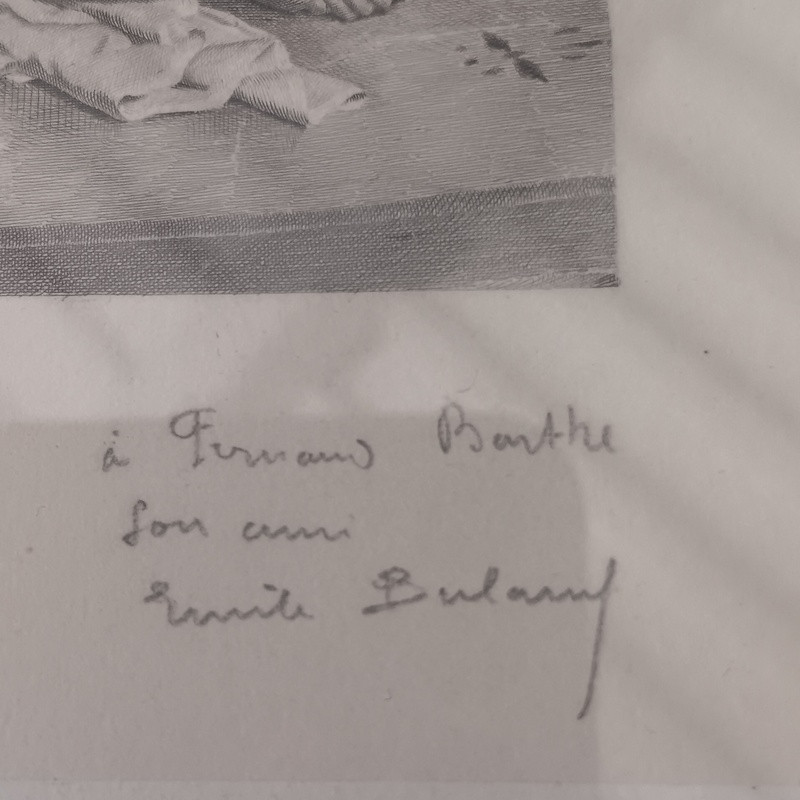 à Fernand Barthe
Son ami
Emile Buland